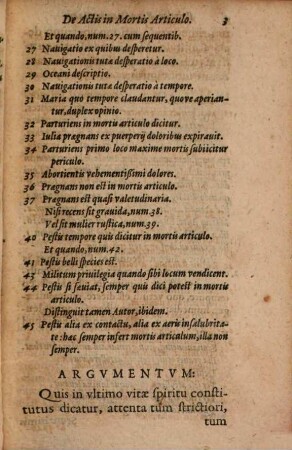 De Actis in Mortis Articulo. 3
Et quando, num. 27. cum sequentib.
27 Nauigatio ex quibus desperetur.
28 Nauigationis tutæ desperatio à loco.
29 Oceani descriptio.
30 Nauigationis tutæ desperatio à tempore.
31 Maria quo tempore claudantur, quove aperian-
tur, duplex opinio.
32 Parturiens in mortis articulo dicitur.
33 Iulia prægnans ex puerperij doloribus expirauit.
34 Parturiens primo loco maxime mortis subijcitur
periculo.
35 Abortientis vehementißimi dolores.
36 Prægnans non est in mortis articulo.
37 Prægnans est quasi valetudinaria.
Nisi recens sit grauida, num. 38.
Vel sit mulier rustica, num. 39.
40 Pestis tempore quis dicitur in mortis articulo.
Et quando, num. 42.
41 Pestis belli species est.
43 Militum priuilegia quando sibi locum vendicent.
44 Pestis si sæuiat, semper quis dici potest in mortis
articulo.
Distinguit tamen Autor, ibidem.
45 Pestis alia ex contactu, alia ex aeris insalubrita-
te: hæc semper infert mortis articulum, illa non
semper.
ARGVMENTVM:
Quis in vltimo vitæ spiritu consti-
tutus dicatur, attenta tum strictiori,
tum